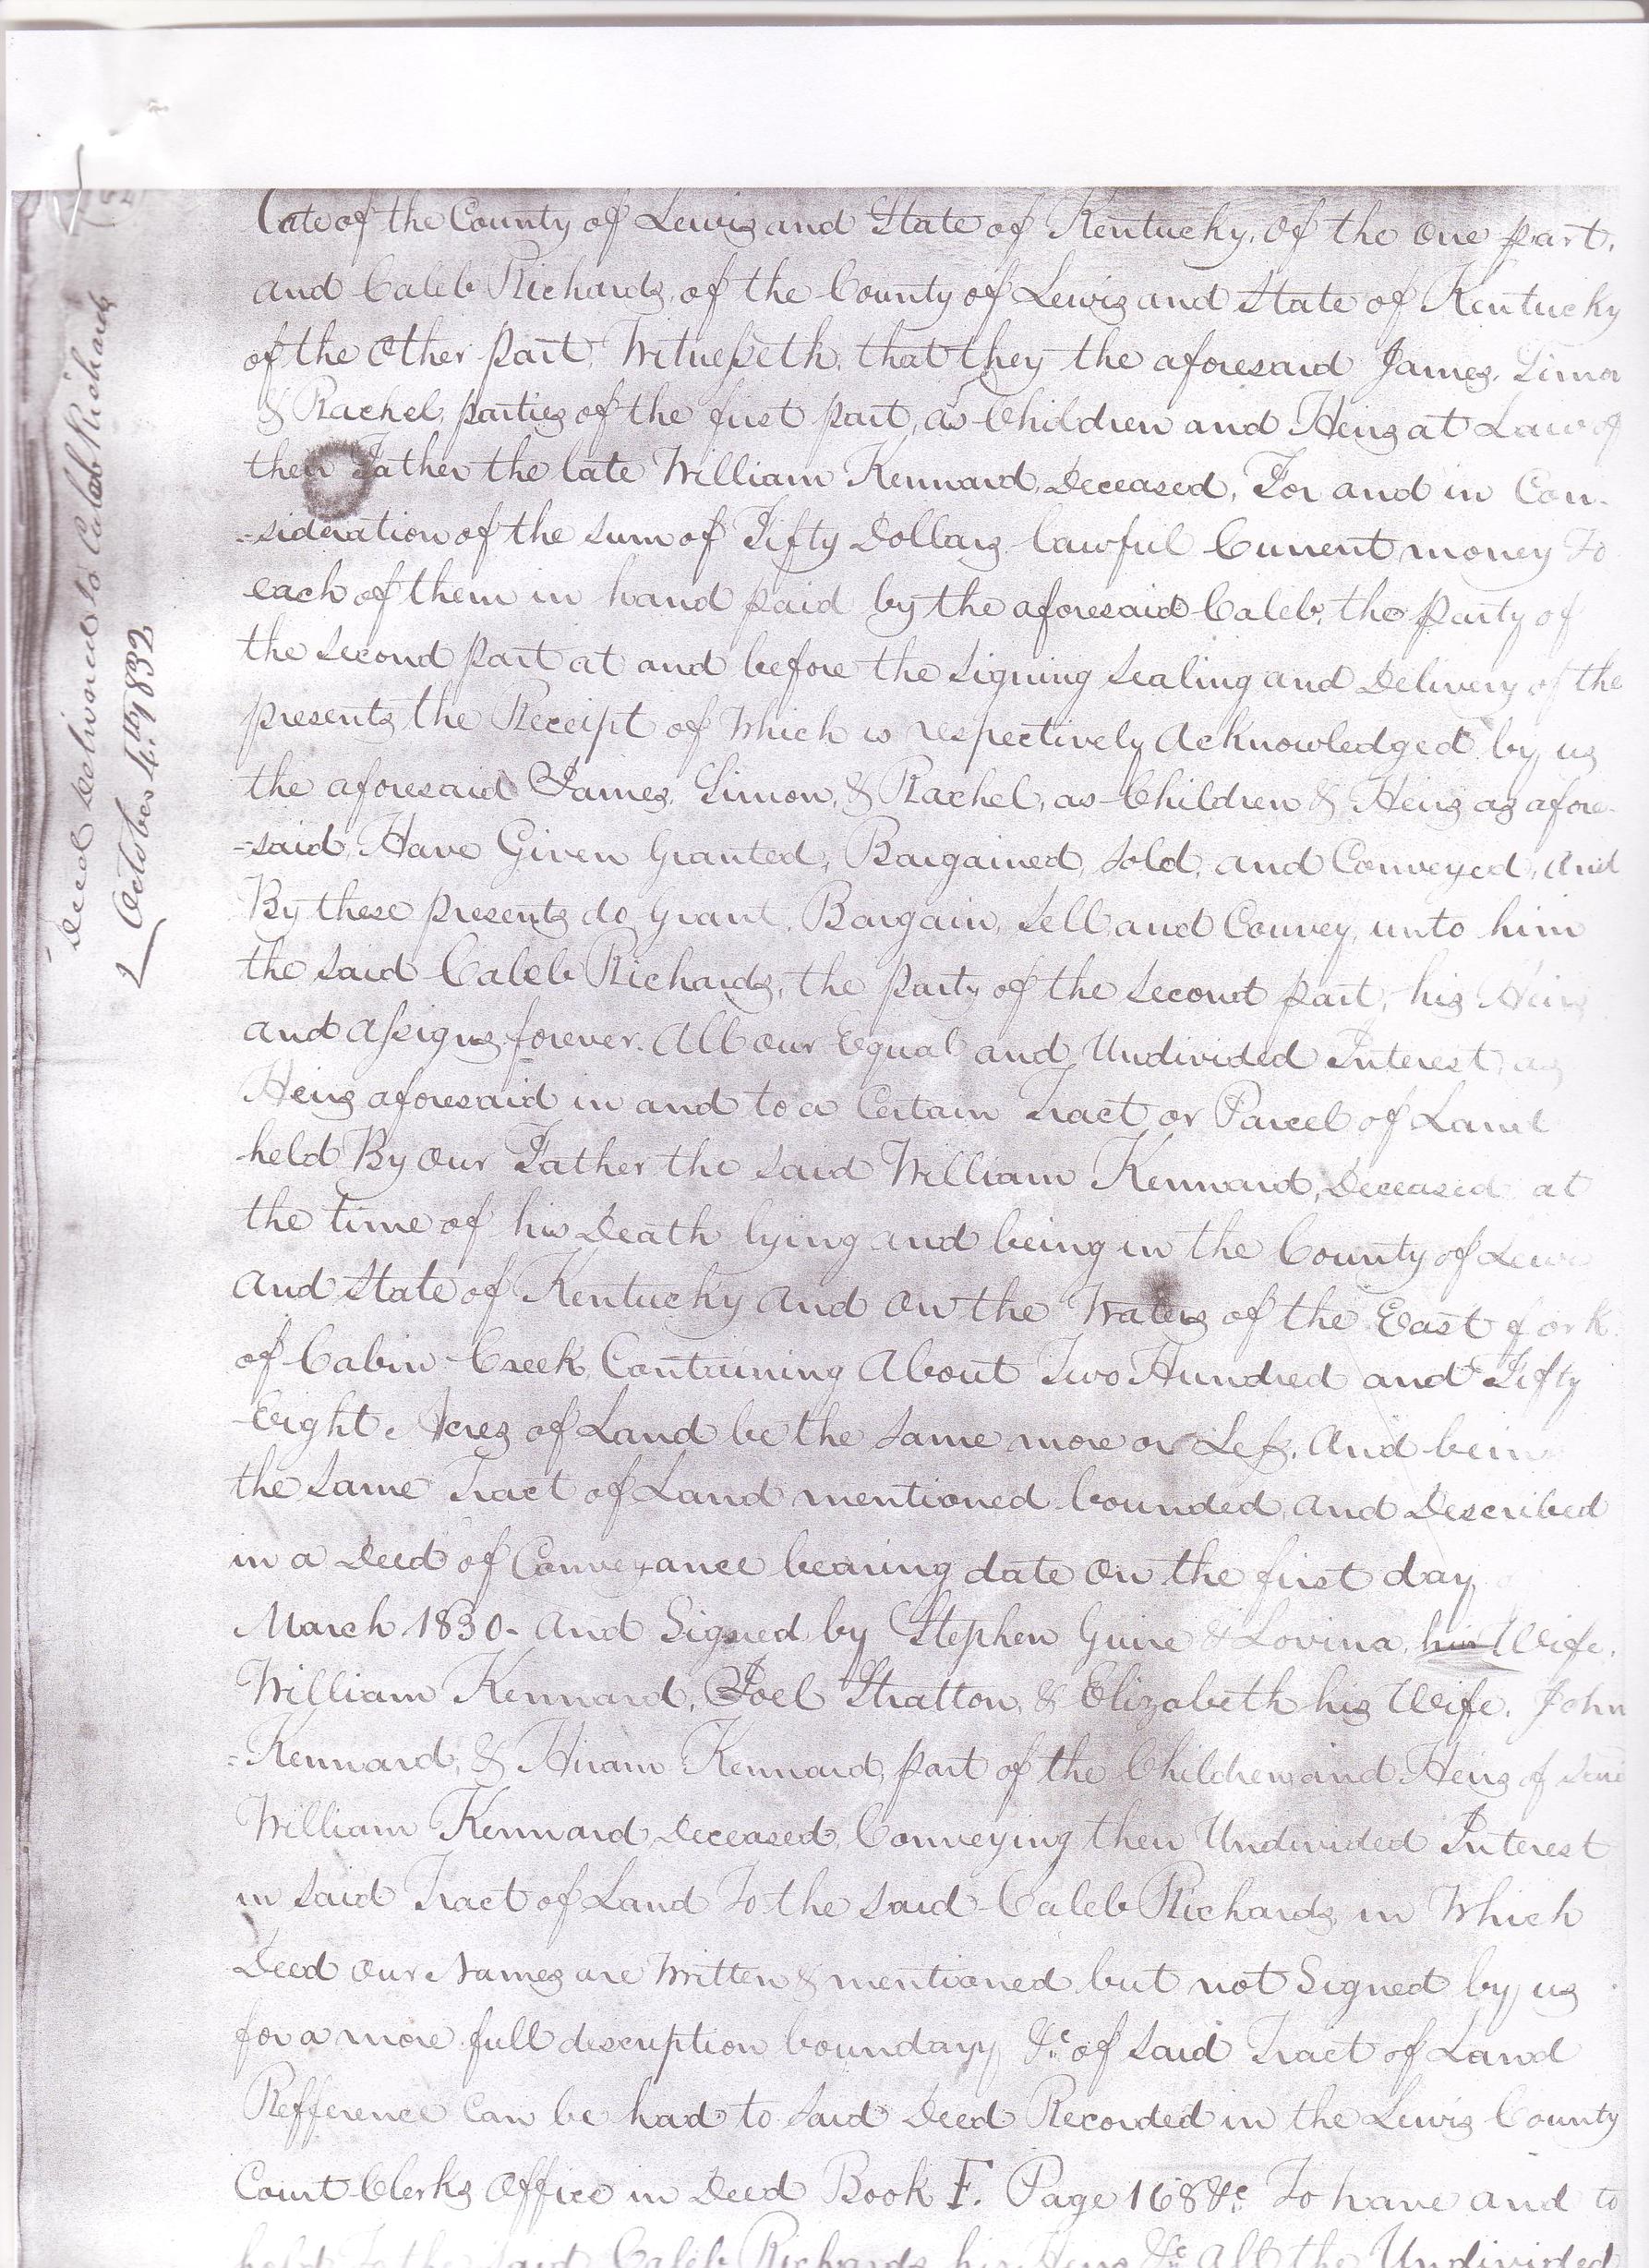 Deed delivered to Caleb Richards
October 4th 1832
late of the County of Lewis and State of Kentucky, Of the One part,
and Caleb Richards, of the County of Lewis and State of Kentucky
of the Other part, Witnesseth, that they the aforesaid James, Simon
& Rachel, parties of the first part, as Children and Heirs at Law of
their Father the late William Kennard, Deceased, For and in Con-
-sideration of the sum of Fifty Dollars lawful Current money To
each of them in hand paid by the aforesaid Caleb, the party of
the second part at and before the signing sealing and Delivery of the
presents, the Receipt of Which is respectively acknowledged by us
the aforesaid James, Simon, & Rachel, as Children & Heirs as afore-
-said, Have Given Granted, Bargained, sold, and Conveyed, And
By these presents do Grant, Bargain, Sell and Convey, unto him
the said Caleb Richards, the party of the second part, his Heirs
and assigns forever. All our Equal and Undivided Interest, as
Heirs aforesaid in and to a Certain Tract or Parcel of Land
held By Our Father the said William Kennard, Deceased at
the time of his Death lying and being in the County of Lewis
and State of Kentucky and On the Waters of the East fork
of Cabin Creek, Containing About Two Hundred and Fifty
Eight Acres of Land be the same more or Less. And being
the same Tract of Land mentioned bounded and Described
in a Deed of Conveyance bearing date On the first day
March 1830- and Signed by Stephen Guire & Lovina, his Wife.
William Kennard, Joel Stratton, & Elizabeth his Wife. John
=Kennard, & Hiram Kennard, part of the Children and Heirs of said
William Kennard Deceased, Conveying their Undivided Interest
in said Tract of Land To the said Caleb Richards, in Which
Deed our Names are Written & mentioned but not Signed by us
for a more full description boundary &c of said Tract of Land
Refference Can be had to said Deed Recorded in the Lewis County
Court Clerks Office in Deed Book F. Page 168 &c. To have and to
hold To the said Caleb Richards his Heirs &c all the Undivided